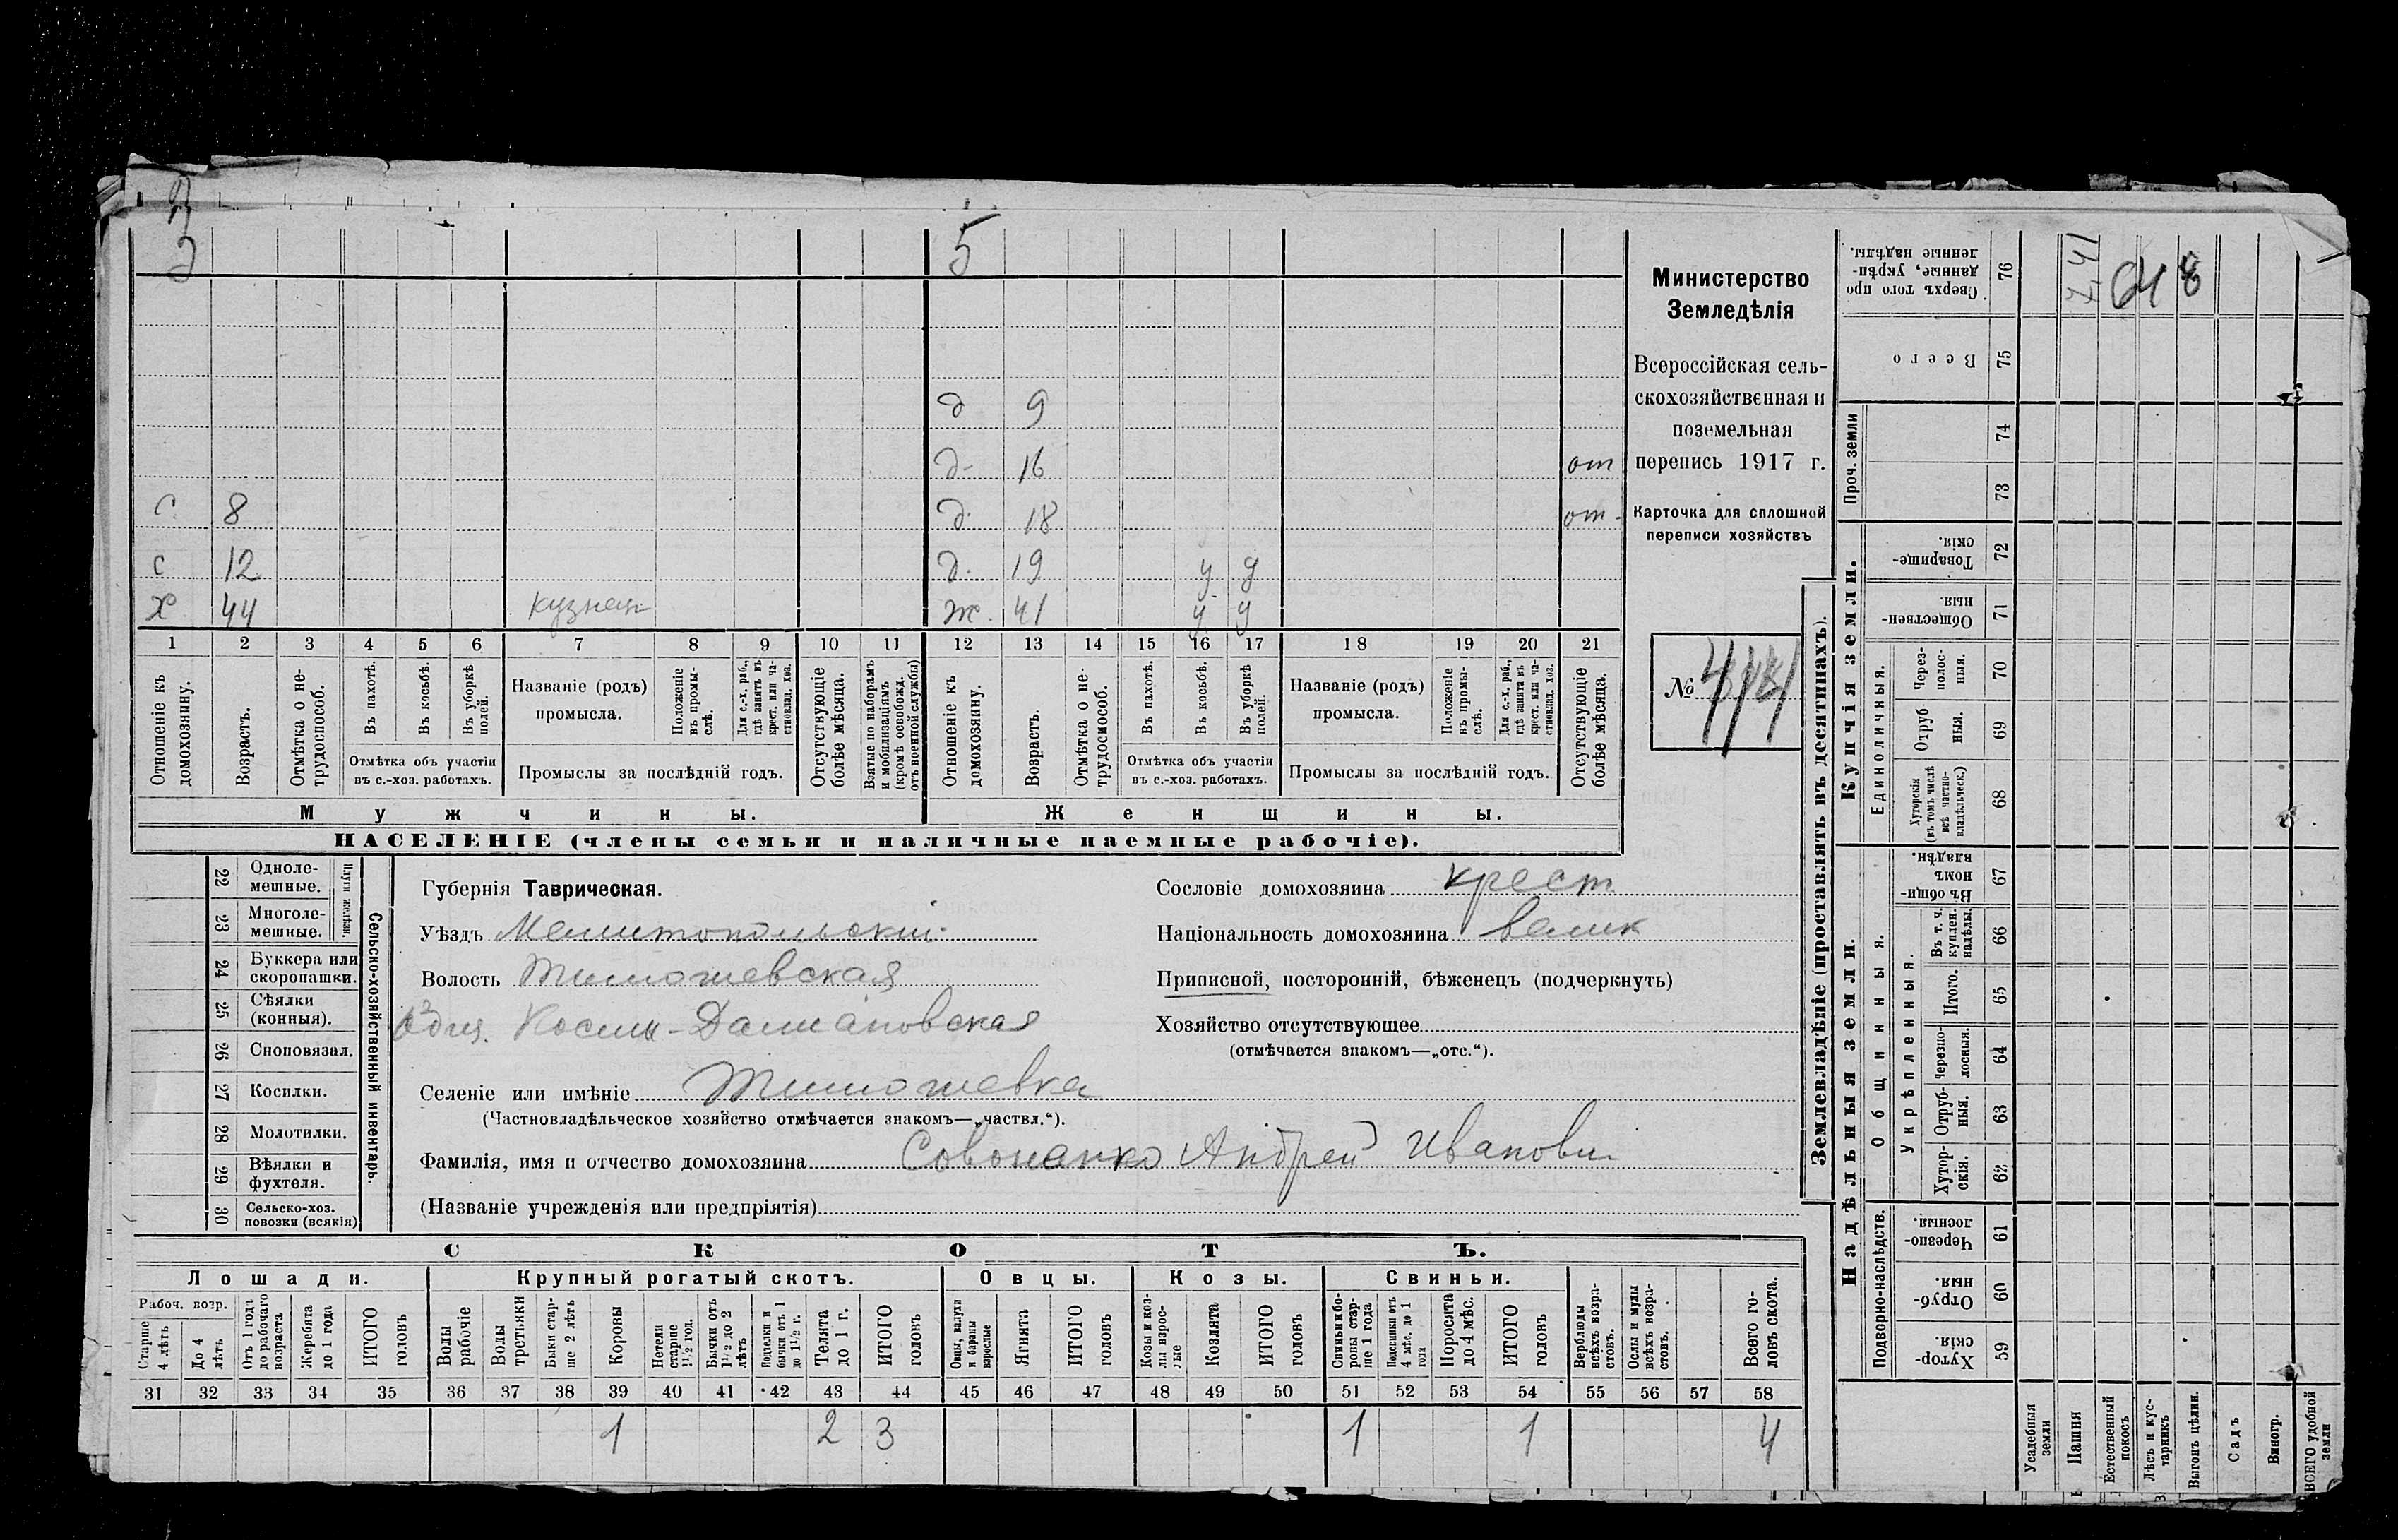 5
Министерство
Земледѣлія
Всероссійская сель-
скохозяйственная и
поземельная
перепись 1917 г.
Карточка для сплошной
переписи хозяйствъ
№
д 9
д. 16 от
с. 8 д. 18 от.
с 12 д. 19 у у
х 44 кузнец ж. 41 у у
1 2 3 4 5 6 7 8 9 10 11 12 13 14 15 16 17 18 19 20 21
Отношеніе къ домохозяину.
Возрастъ.
Отмѣтка о не-трудоспособ.
Въ пахотѣ.
Въ косьбѣ.
Въ уборкѣ полей.
Отмѣтка объ участіи
въ с.-хоз. работахъ.
Названіе (родъ)
промысла.
Положеніе въ промы-слѣ.
Для с.-х. раб., гдѣ занятъ въ крест. или ча-стновлад. хоз.
Промыслы за послѣдній годъ.
Отсутствующіе болѣе мѣсяца.
Взятые по наборамъ и мобилизаціямъ (кромѣ освобожд. отъ военной службы)
Отношеніе къ домохозяину.
Возрастъ.
Отмѣтка о не-трудоспособ.
Въ пахотѣ.
Въ косьбѣ.
Въ уборкѣ полей.
Отмѣтка объ участіи
въ с.-хоз. работахъ.
Названіе (родъ)
промысла.
Положеніе въ промы-слѣ.
Для с.-х. раб., гдѣ занята въ крест. или ча-стновлад. хоз.
Промыслы за послѣдній годъ.
Отсутствующіе болѣе мѣсяца.
Мужчины. Женщины.
НАСЕЛЕНІЕ (члены семьи и наличные наемные рабочіе).
22 Одноле-мешные.
23 Многоле-мешные.
Плуги желѣзн.
24 Буккера или скоропашки.
25 Сѣялки (конныя).
26 Сноповязал.
27 Косилки.
28 Молотилки.
29 Вѣялки и фухтеля.
30 Сельско-хоз. повозки (всякія)
Сельско-хозяйственный инвентарь.
Губернія Таврическая.
Уѣздъ Мелитопольскій.
Волость Тимошевская
Общ. Косьмы-Даміановская
Селеніе или имѣніе Тимошевка
(Частновладѣльческое хозяйство отмѣчается знакомъ—„частвл.“).
Фамилія, имя и отчество домохозяина Совоненко Андрей Иванович
(Названіе учрежденія или предпріятія)
Сословіе домохозяина крест
Національность домохозяина велик
Приписной, посторонній, бѣженецъ (подчеркнуть)
Хозяйство отсутствующее
(отмѣчается знакомъ—„отс.“).
СКОТЪ.
Лошади. Крупный рогатый скотъ. Овцы. Козы. Свиньи.
Рабоч. возр.
Старше 4 лѣтъ
До 4 лѣтъ
Отъ 1 года до рабочаго возраста
Жеребята до 1 года
ИТОГО головъ
Волы рабочіе
Волы третьяки
Быки стар-ше 2 лѣтъ
Коровы
Нетели старше 1½ год.
Бычки отъ 1½ до 2 лѣтъ
Подтелки и бычки отъ 1 до 1½ г.
Телята до 1 г.
ИТОГО головъ
Овцы, валухи и бараны взрослые
Ягнята
ИТОГО головъ
Козы и коз-лы взрос-лые
Козлята
ИТОГО головъ
Свиньи и бо-ровы стар-ше 1 года
Подсвинки отъ 4 мѣс. до 1 года
Поросята до 4 мѣс.
ИТОГО головъ
Верблюды всѣхъ возра-стовъ.
Ослы и мулы всѣхъ возра-стовъ.
Всего го-ловъ скота.
31 32 33 34 35 36 37 38 39 40 41 42 43 44 45 46 47 48 49 50 51 52 53 54 55 56 57 58
1 2 3 1 1 4
Землевладѣніе (проставлять въ десятинахъ).
Купчія земли.
Надѣльныя земли.
Сверхъ того про данные, укрѣп-ленные надѣлы. 76
Всего 75
Проч. земли 74
73
Товарище-скія. 72
Обществен-ныя. 71
Единоличныя.
Через-полос-ныя. 70
Отруб ныя. 69
Хуторскія (въ томъ числѣ всѣ частно-владѣльческ.) 68
Общинныя.
Въ общи-номъ владѣн. 67
Укрѣпленныя.
Въ т. ч. куплен. надѣлы. 66
Итого. 65
Черезпо-лосныя. 64
Отруб-ныя. 63
Хутор-скія. 62
Подворно-наслѣдств.
Черезпо-лосныя. 61
Отруб-ныя. 60
Хутор-скія. 59
Усадебныя земли
Пашня
Естественный покосъ
Лѣсъ и кус-тарникъ
Выгонъ цѣлин.
Садъ
Виногр.
ВСЕГО удобной земли